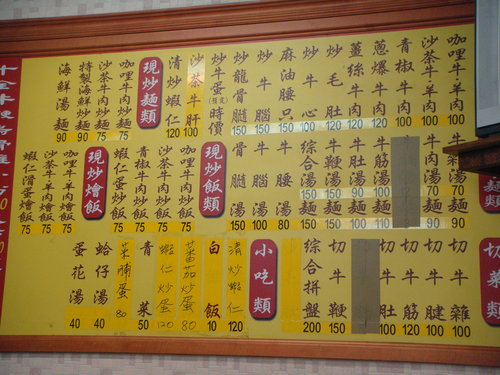 咖哩牛羊肉 100
沙茶牛羊肉 100
青椒牛肉 100
蔥爆牛肉 100
薑絲牛肚 120
炒毛肚 120
炒牛心 100
麻油腰只 150
炒牛腦 150
炒龍骨髓 150
炒牛蛋(預定)時價
沙茶牛肝 100
清炒蝦仁 120
現炒麵類
咖哩牛肉炒麵 75
沙茶牛肉炒麵 75
特製海鮮炒麵 90
海鮮湯麵 90
牛雜湯 70 麵 90
牛肉湯 70 麵 90
牛筋湯 100 麵 110
牛肚湯 90 麵 100
牛鞭湯 150 麵 150
綜合湯 150 麵 150
牛腰湯 80
牛腦湯 100
骨髓湯 150
現炒飯類
咖哩牛肉炒飯 75
沙茶牛肉炒飯 75
青椒牛肉炒飯 75
蝦仁蛋炒飯 75
現炒燴飯
咖哩牛羊肉燴飯 75
沙茶牛羊肉燴飯 75
蝦仁滑蛋燴飯 75
切菜類
切牛雜 100
切牛腱 100
切牛筋 120
切牛肚 100
切牛鞭 150
綜合拼盤 200
小吃類
清炒蝦仁 120
白飯 10
蕃茄炒蛋 80
蝦仁炒蛋 120
青菜 50
菜脯蛋 80
蛤仔湯 40
蛋花湯 40